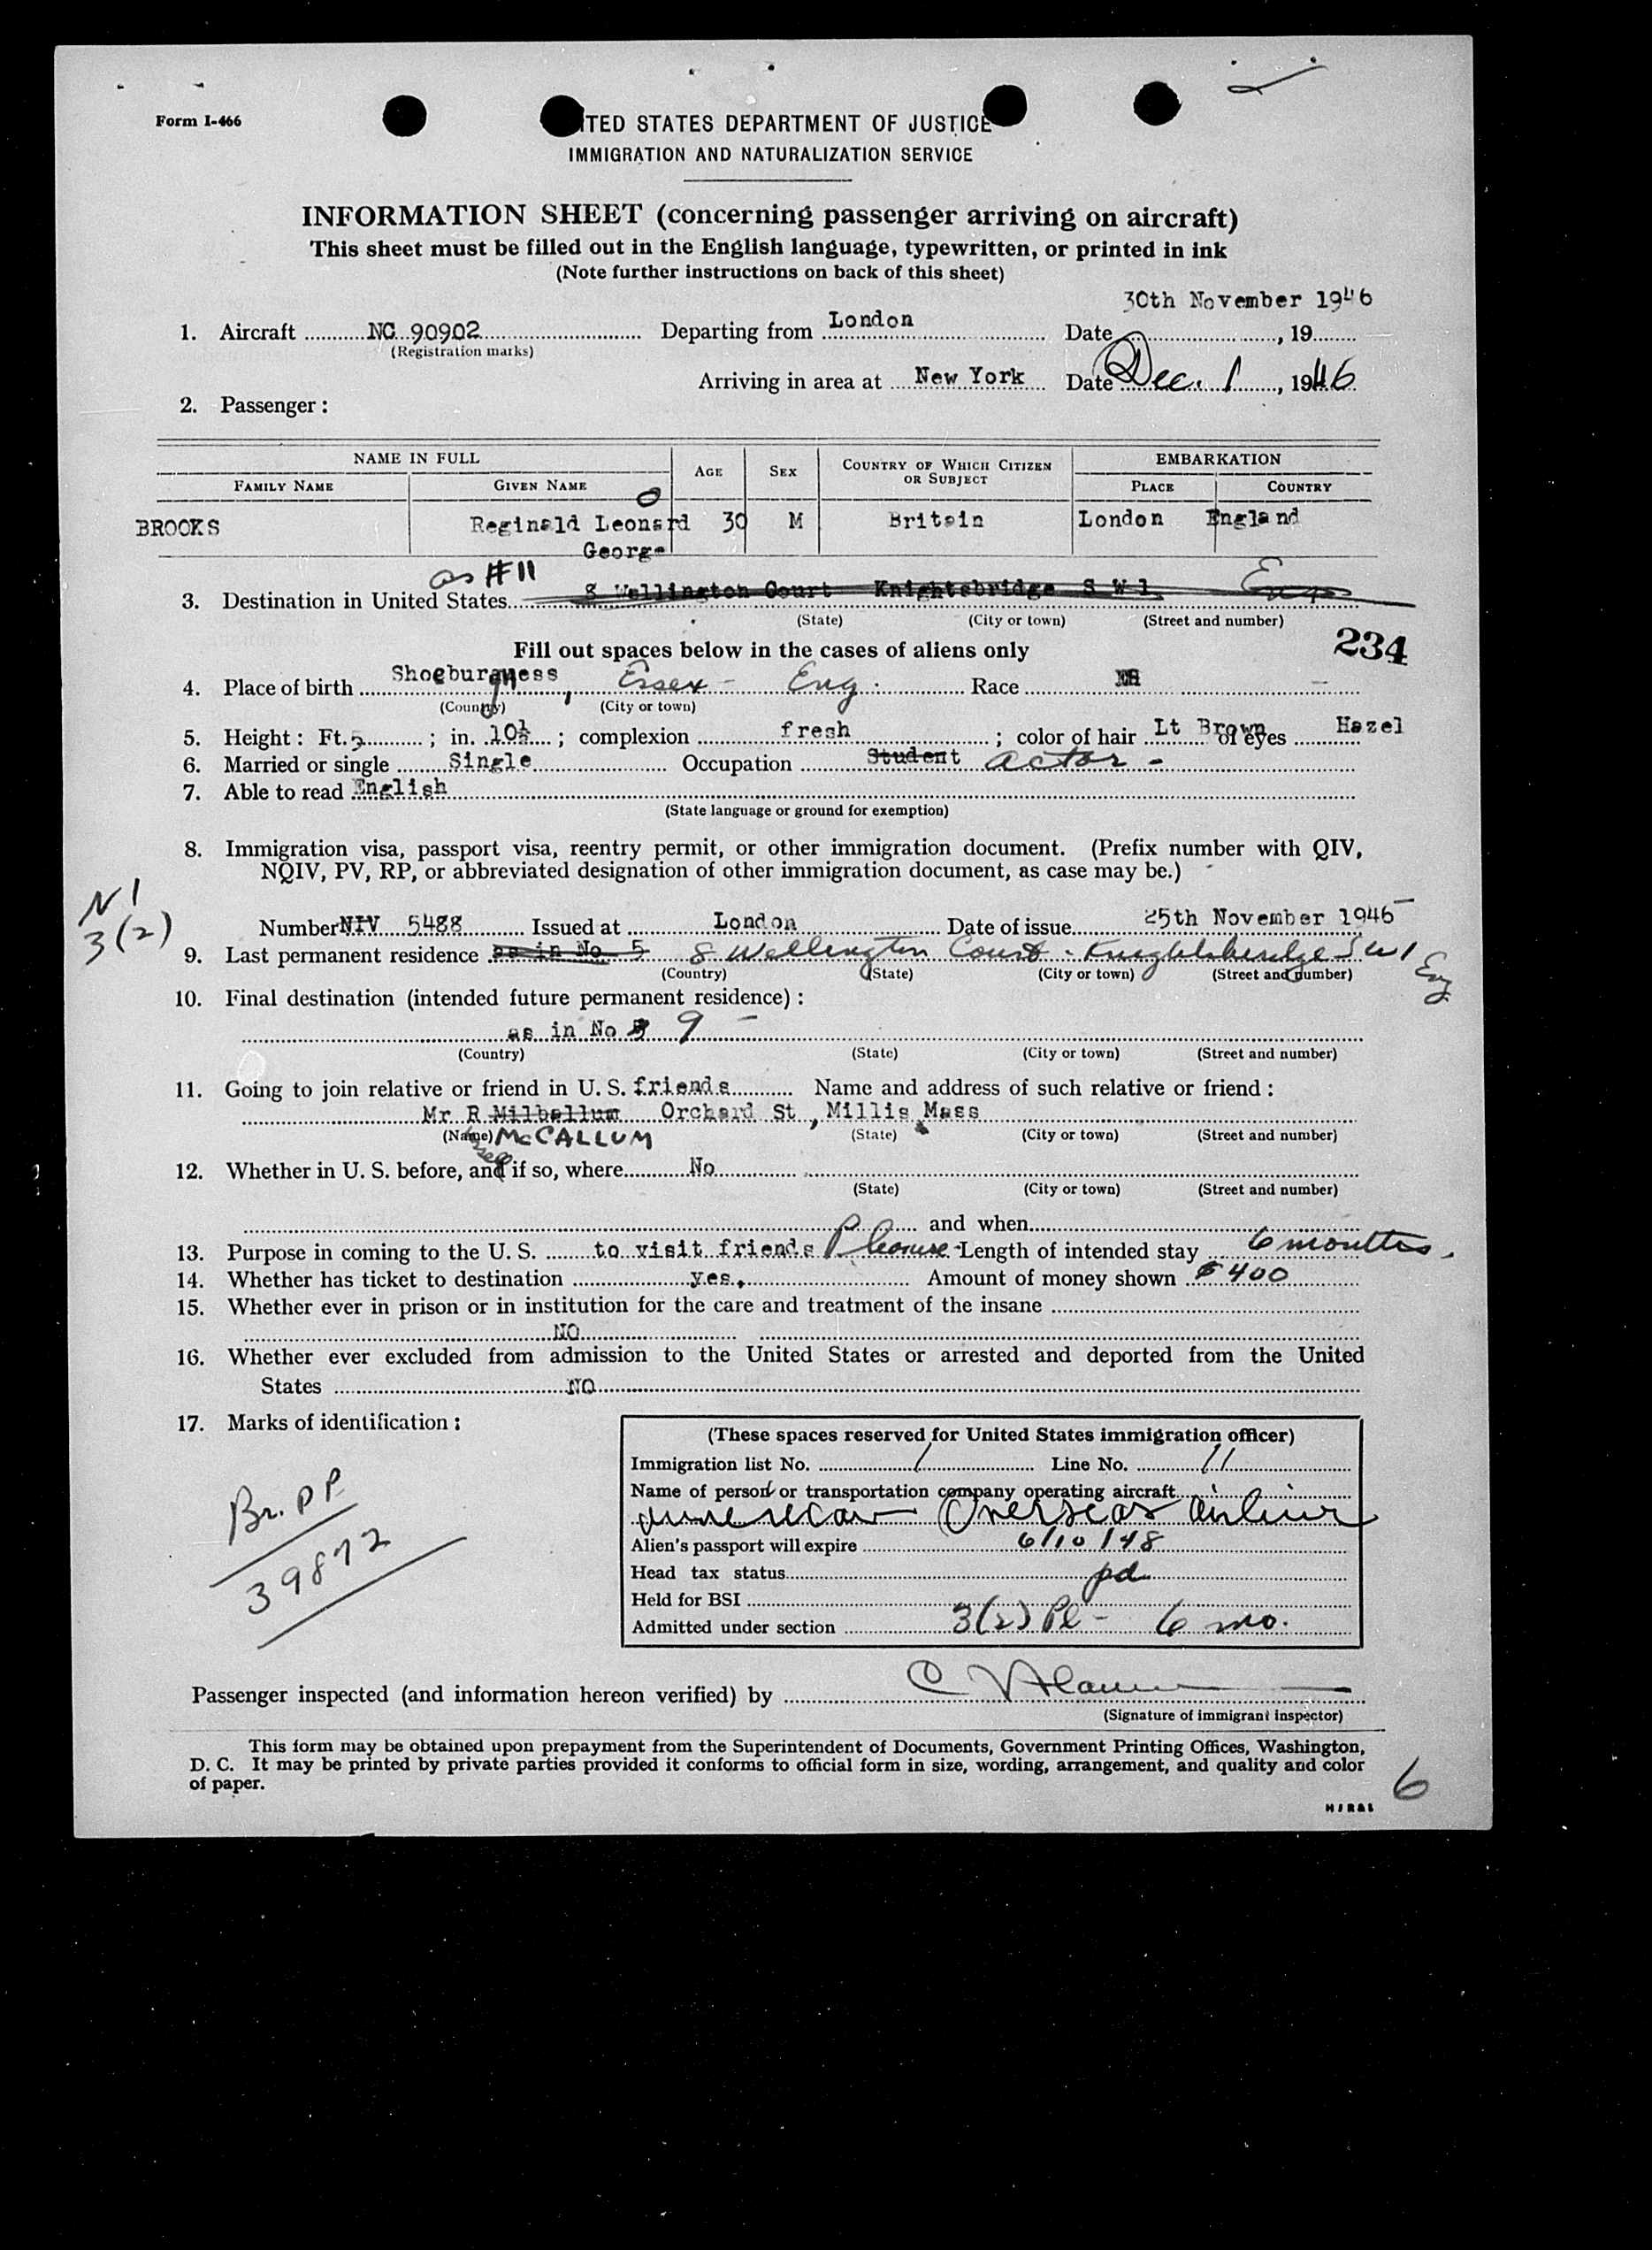 Form I-466
ITED STATES DEPARTMENT OF JUSTICE
IMMIGRATION AND NATURALIZATION SERVICE
INFORMATION SHEET (concerning passenger arriving on aircraft)
This sheet must be filled out in the English language, typewritten, or printed in ink
(Note further instructions on back of this sheet)
30th November 1946
1. Aircraft NC 90902 Departing from London Date , 19
(Registration marks)
Arriving in area at New York Date Dec. 1, 1946
2. Passenger:
NAME IN FULL AGE SEX COUNTRY OF WHICH CITIZEN OR SUBJECT EMBARKATION
FAMILY NAME GIVEN NAME PLACE COUNTRY
BROOKS Reginald Leonard 30 M Britain London England
George
as #11
3. Destination in United States 8 Wellington Court Knightsbridge S W 1 Eng
(State) (City or town) (Street and number)
234
Fill out spaces below in the cases of aliens only
4. Place of birth Shoeburyness, Essex - Eng. Race
(Country) (City or town)
5. Height: Ft. 5; in. 10½; complexion fresh; color of hair Lt Brown of eyes Hazel
6. Married or single Single Occupation Student actor -
7. Able to read English
(State language or ground for exemption)
8. Immigration visa, passport visa, reentry permit, or other immigration document. (Prefix number with QIV,
NQIV, PV, RP, or abbreviated designation of other immigration document, as case may be.)
N 1
3(2)
Number NIV 5488 Issued at London Date of issue 25th November 1946
9. Last permanent residence as in No 5 8 Wellington Court - Knightsbridge SW1 Eng
(Country) (State) (City or town) (Street and number)
10. Final destination (intended future permanent residence):
as in No 9
(Country) (State) (City or town) (Street and number)
11. Going to join relative or friend in U. S. friends Name and address of such relative or friend:
Mr R Milballum Orchard St, Millis Mass
(Name) McCALLUM (State) (City or town) (Street and number)
12. Whether in U. S. before, and if so, where No
(State) (City or town) (Street and number)
and when
13. Purpose in coming to the U. S. to visit friends Pleasure Length of intended stay 6 months.
14. Whether has ticket to destination yes. Amount of money shown $400
15. Whether ever in prison or in institution for the care and treatment of the insane
NO
16. Whether ever excluded from admission to the United States or arrested and deported from the United
States NO
17. Marks of identification:
Br. PP
39872
(These spaces reserved for United States immigration officer)
Immigration list No. 1 Line No. 11
Name of person or transportation company operating aircraft
American Overseas Airlines
Alien's passport will expire 6/10/48
Head tax status pd
Held for BSI
Admitted under section 3(2) Pl - 6 mo.
Passenger inspected (and information hereon verified) by
(Signature of immigrant inspector)
This form may be obtained upon prepayment from the Superintendent of Documents, Government Printing Offices, Washington,
D. C. It may be printed by private parties provided it conforms to official form in size, wording, arrangement, and quality and color
of paper.
6